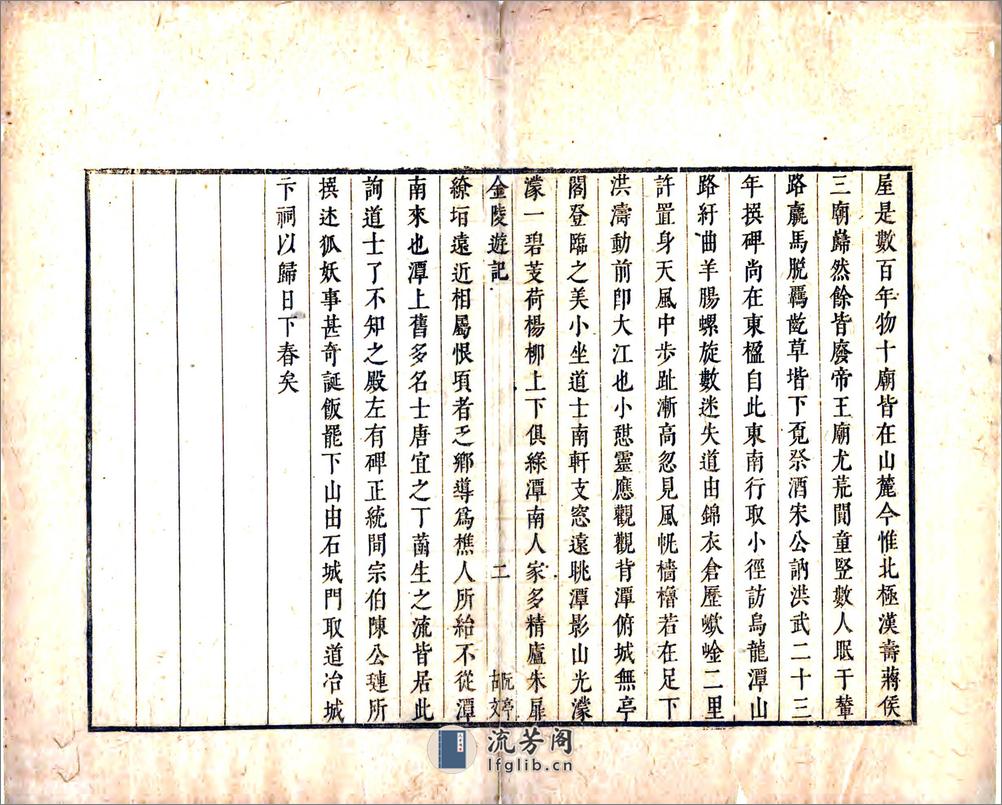 屋是數百年物十廟皆在山麓今惟北極漢壽蔣侯
三廟巋然餘皆廢帝王廟尤荒閒童豎數人眠于輦
路麄馬脫羈齕草堦下覔祭酒宋公訥洪武二十三
年撰碑尚在東楹自此東南行取小徑訪烏龍潭山
路紆曲羊腸螺旋數迷失道由錦衣倉歷嶔崟二里
許置身天風中步趾漸高忽見風帆檣櫓若在足下
洪濤動前卽大江也小憇靈應觀觀背潭俯城無亭
閣登臨之美小坐道士南軒支窓遠眺潭影山光濛
濛一碧芰荷楊柳上下俱綠潭南人家多精廬朱扉
金陵遊記 二 阮亭古文
繚垣遠近相屬恨頃者乏鄉導爲樵人所紿不從潭
南來也潭上舊多名士唐宜之丁菡生之流皆居此
詢道士了不知之殿左有碑正統間宗伯陳公璉所
撰述狐妖事甚奇誕飯罷下山由石城門取道冶城
卞祠以歸日下舂矣
流芳阁
lfglib.cn